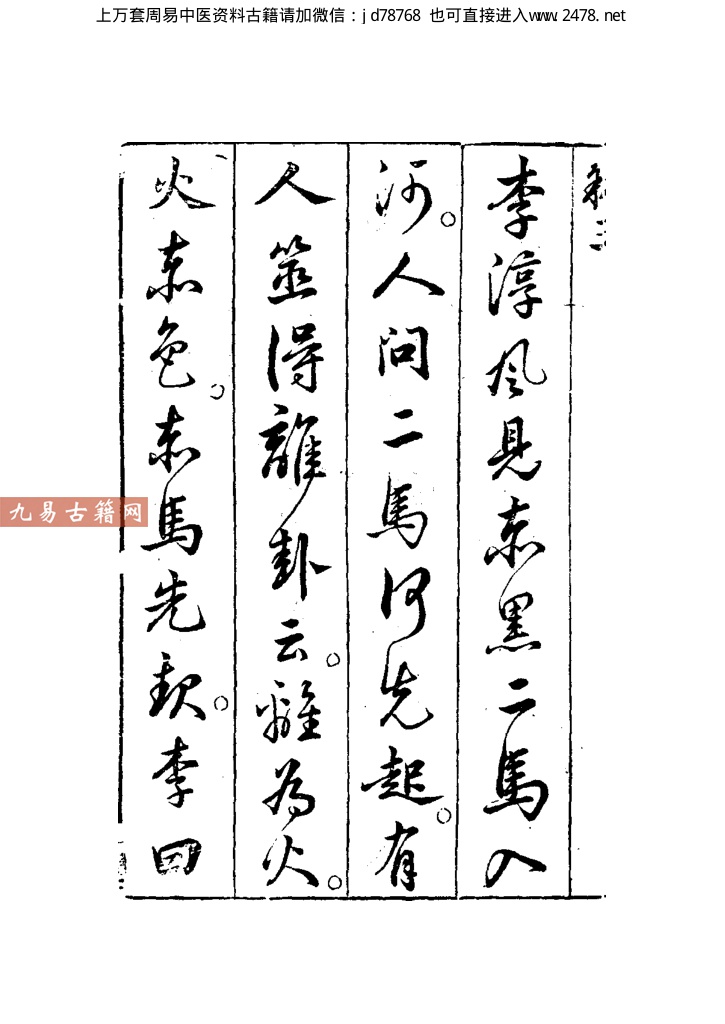 上万套周易中医资料古籍请加微信：jd78768 也可直接进入www.2478.net
李淳风見赤黑二馬入
河。人问二馬何先起。有
人筮得離卦云。離為火。
火赤色。赤馬先起。李曰
九易古籍网